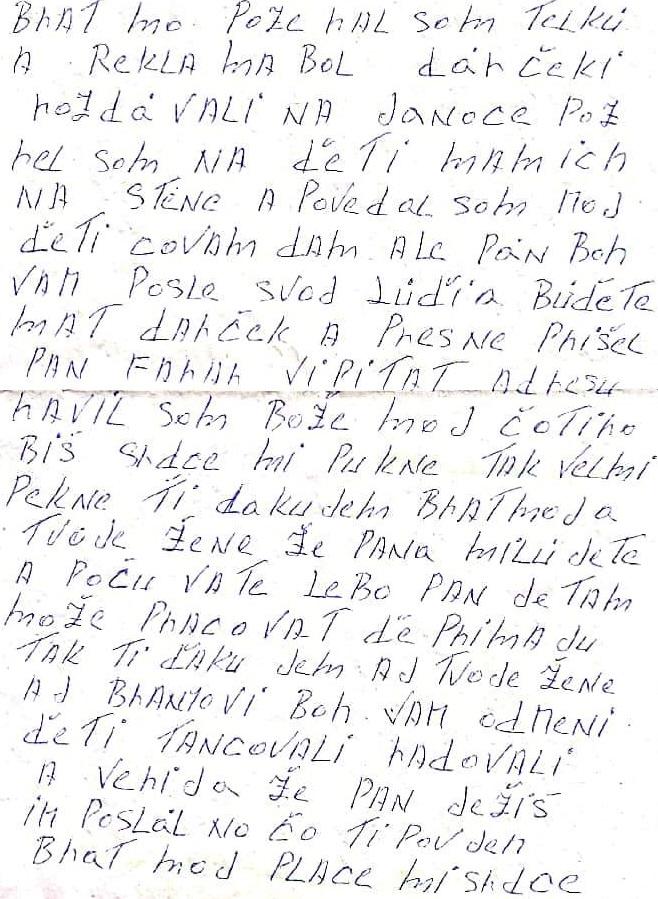 BhAT mo. POZE hAL som TELKU
A REKLA MA BOL dáhčeki
hoždá VALI NA JANOCE POZ
hel som NA ďeTi mAmich
NA STĚNE A POVEdAL som MOJ
ďeTi COVAm dAm ALE PáN Boh
VAM POSLE SVOJ LúďiA BúďETE
MAT dAhČEK A PhESNE PhišEL
PAN FAhAh ViPiTAT AdhESU
hAVIL som BOŽE moJ čoTiho
Biš Shdce mi PukNE TAK VELmi
PEKNE Ti ďakuJem BhAT moJ a
TVoJE ŽENE ŽE PANA miLuJETE
A POČU VATE LEBO PAN JETAm
može PhACOVAT ďE PhimAJu
TAK Ti ďAkuJem AJ TVoJE ŽENE
AJ BhANTOVi Boh VAM odMENi
ďeTi TANCOVALi hAdoVALi
A VehiJa ŽE PAN JEŽiš
iM POSLAL NO čo Ti POVJEM
BhAT moJ PLACE mi Shdce